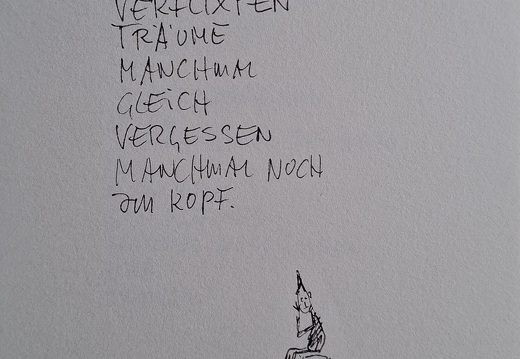 VERFLIXTEN
TRÄUME
MANCHMAL
GLEICH
VERGESSEN
MANCHMAL NOCH
IM KOPF.